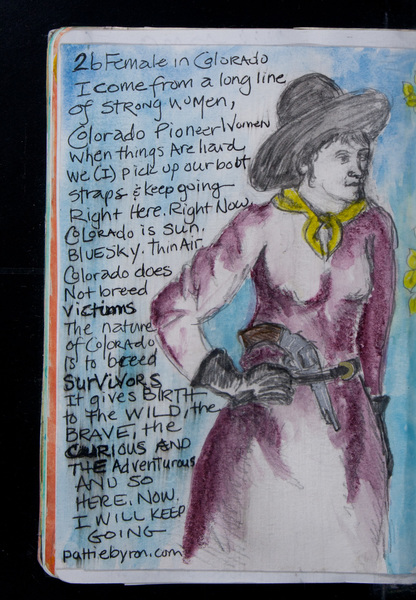 2b Female in COLORADO
I come from a long line
of STRONG WOMEN,
Colorado Pioneer Women
When things Are hard
we (I) pick up our boot
straps & keep going
Right Here. Right Now.
COLORADO is SUN.
BLUESKY. Thin Air
Colorado does
Not breed
Victims
The nature
of COLORADO
is to breed
SURVIVORS
It gives BIRTH
to the WILD, the
BRAVE, the
CURIOUS AND
THE Adventurous
AND SO
HERE. NOW.
I WILL KEEP
GOING
pattiebyron.com